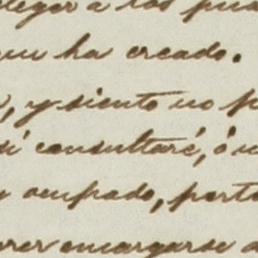 teger a los
que ha creado.
, y siento no p
sí consultaré, ó
y ocupado, porto
rer encargarse